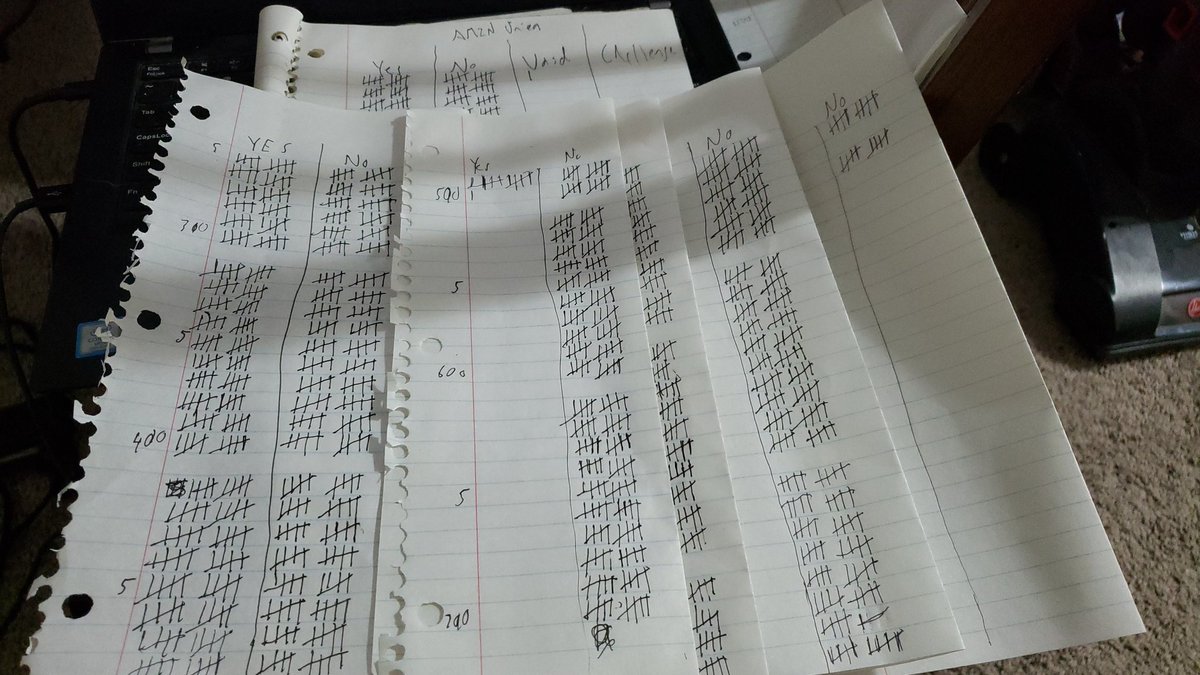 AMZN Union
Yes No Void Challenge
YES No
5
300
5
400
5
Yes No
500
5
600
5
700
No
No
Esc
FnLock
Tab
CapsLo
Shift
Fn